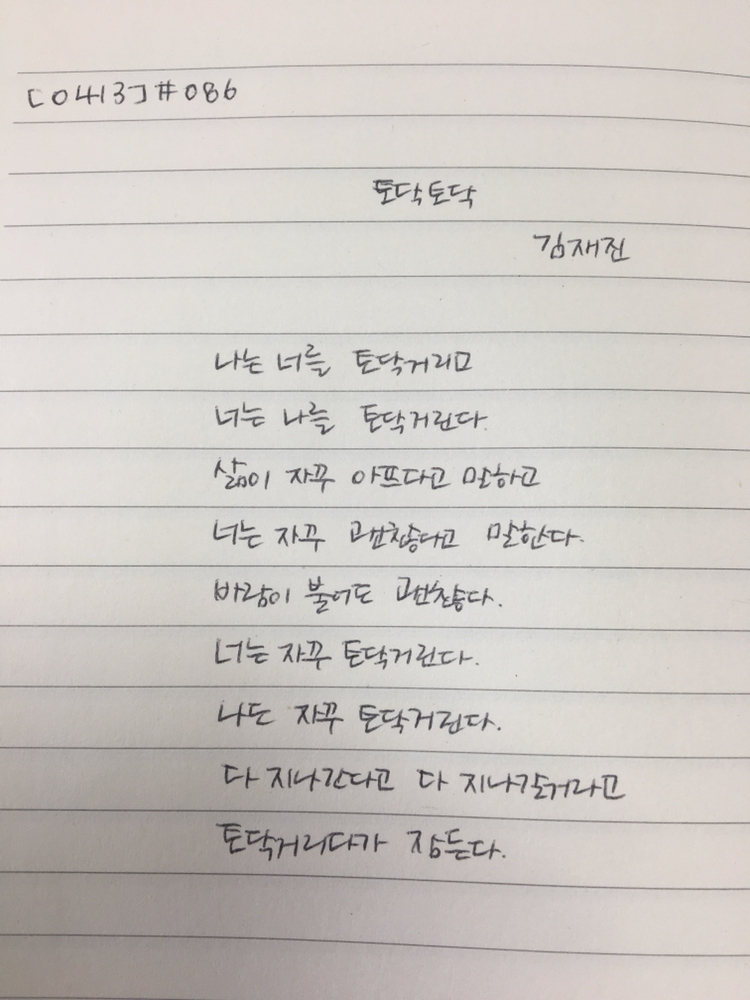 [0413] #086
토닥토닥
김재진
나는 너를 토닥거리고
너는 나를 토닥거린다.
삶이 자꾸 아프다고 말하고
너는 자꾸 괜찮다고 말한다.
바람이 불어도 괜찮다.
너는 자꾸 토닥거린다.
나도 자꾸 토닥거린다.
다 지나간다고 다 지나갈거라고
토닥거리다가 잠든다.